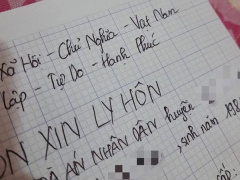 Xã Hội - Chủ Nghĩa - Việt Nam
Lập - Tự Do - Hạnh Phúc
ƠN XIN LY HÔN
ÒA ÁN NHÂN DÂN huyện
, sinh năm 198
cấp: